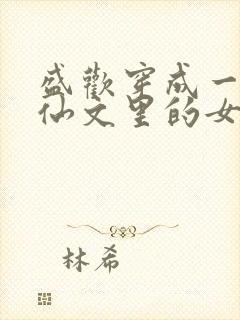 盛歡穿成一
仙文里的女
林希